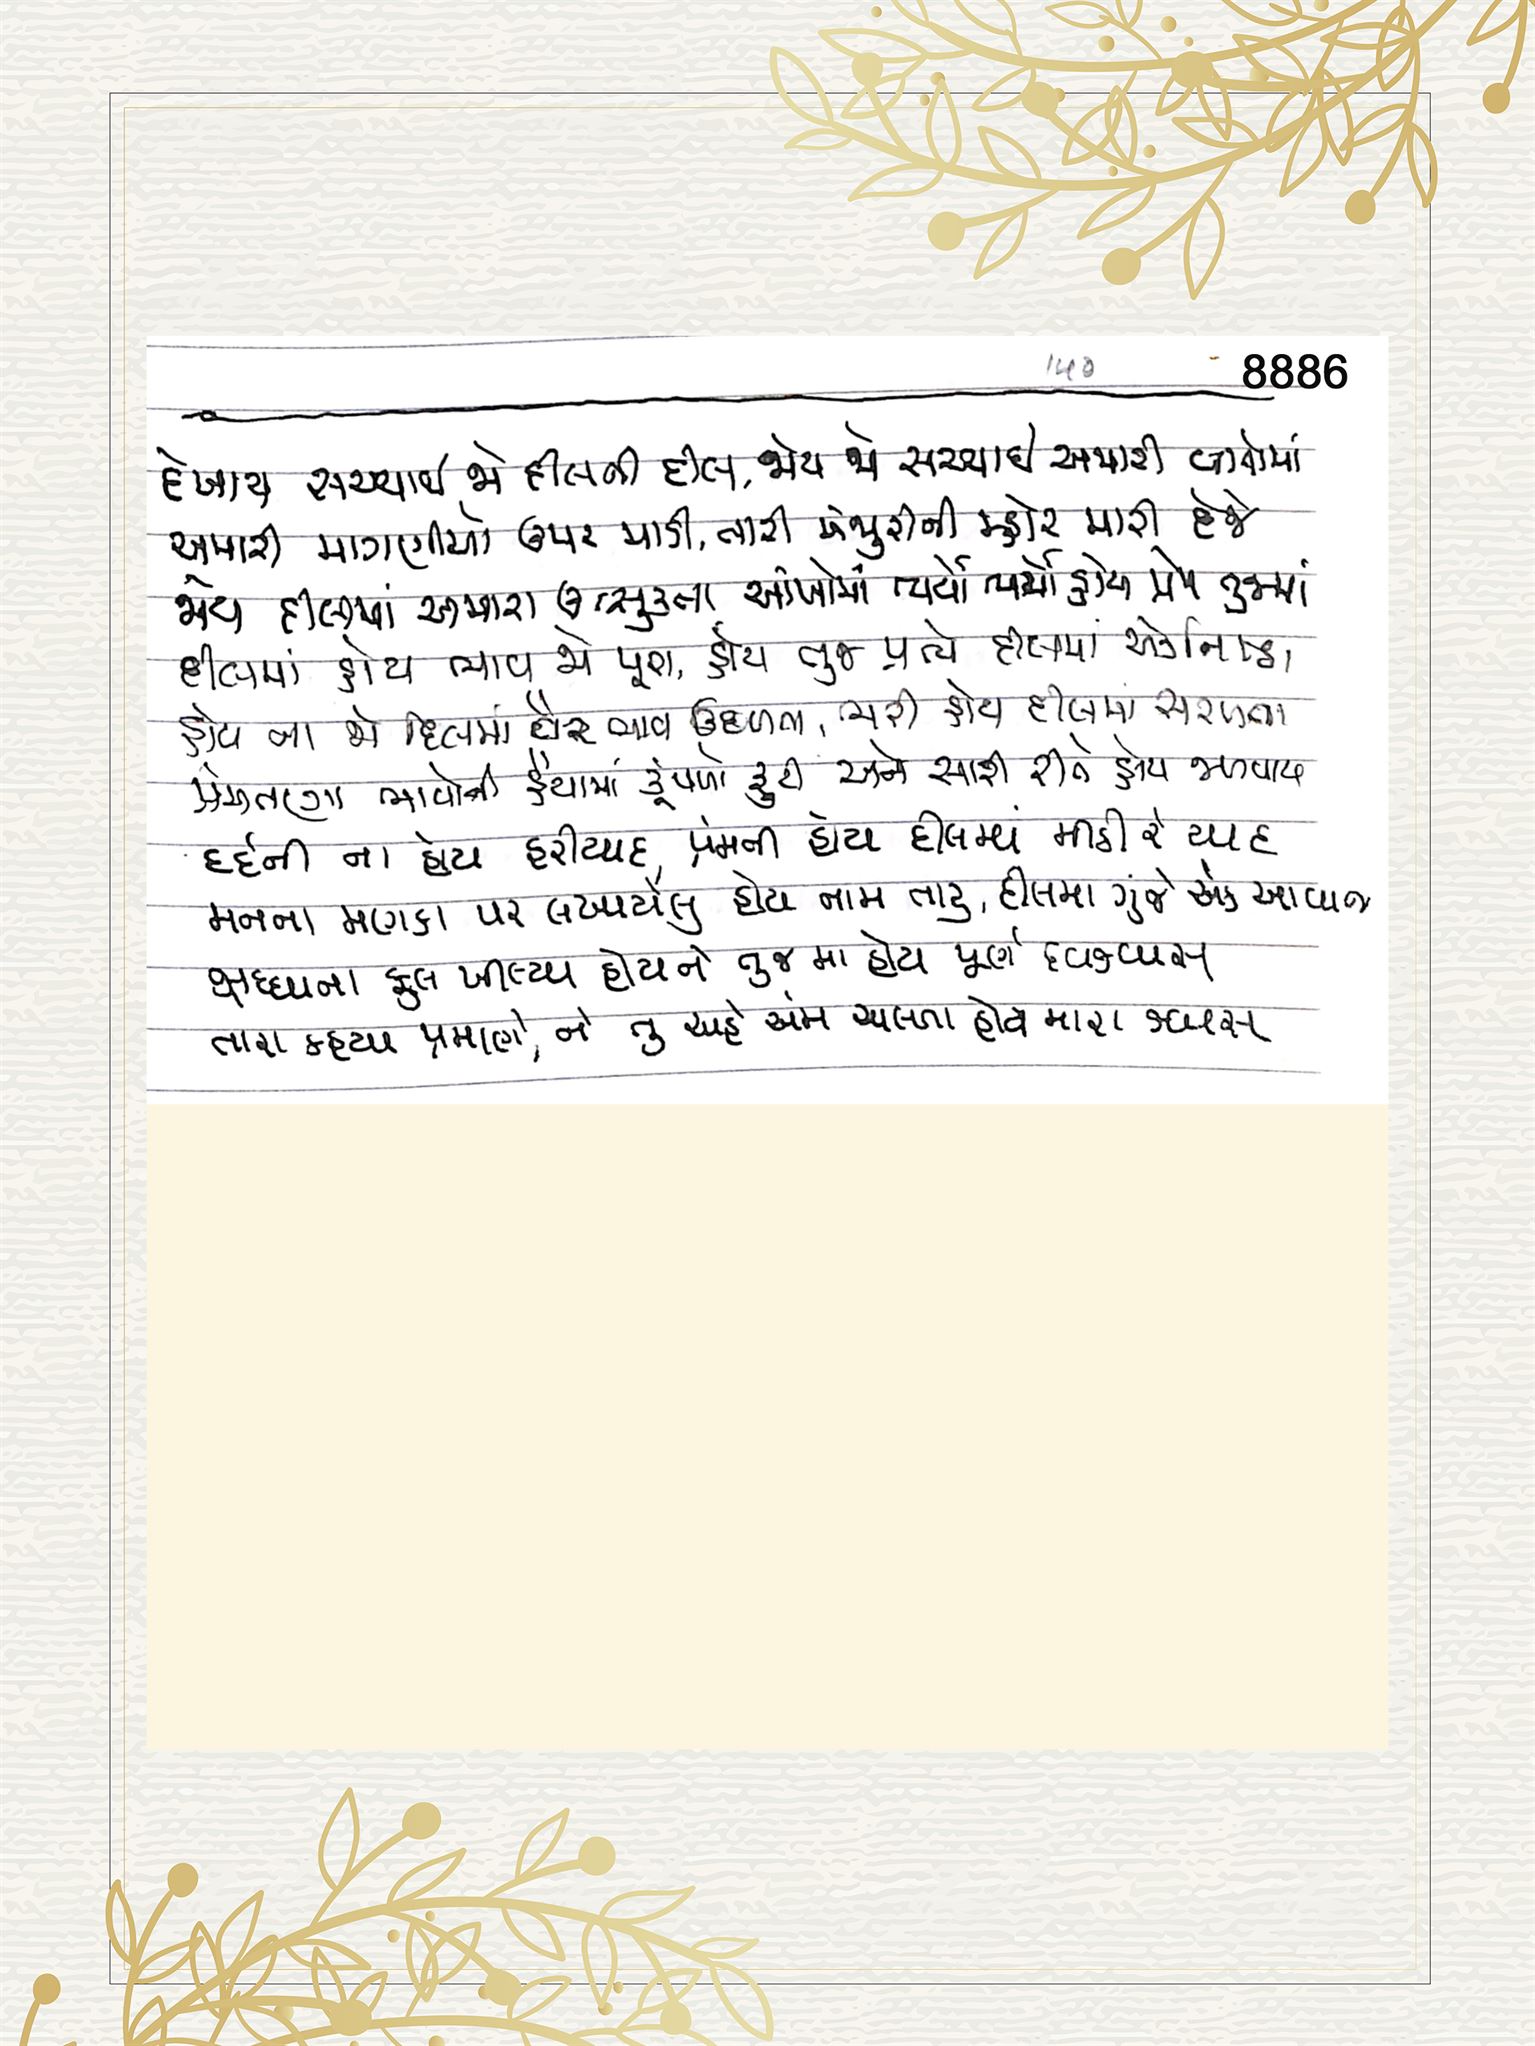 ૧૫૦ 8886
દેખાય સચ્ચાઈ જો દીલની દીલ, જોય જો સચ્ચાઈ અમારી વાતોમાં
અમારી માગણીયો ઉપર માડી, તારી મંજુરીની મ્હોર મારી દેજે
જોય દીલમાં અમારા ઉત્સુકતા આંખોમાં ભર્યો ભર્યો હોય પ્રેમ તુજમાં
દીલમાં હોય ભાવ જો પૂરા, હોય તુજ પ્રત્યે દીલમાં એકનિષ્ઠા
હોય ના જો દિલમાં વૈર ભાવ ઉછળતા, ભરી હોય દીલમાં સરળતા
પ્રેમતણા ભાવોની હૈયામાં કૂંપળો ફુટી અને સારી રીતે હોય જળવાય
દર્દની ના હોય ફરીયાદ, પ્રેમની હોય દીલમાં મીઠી રે યાદ
મનના મણકા પર લખાયેલુ હોય નામ તારુ, દીલમા ગુંજે એક આવાજ
શ્રધ્ધાના ફુલ ખીલ્યા હોય ને તુજ મા હોય પૂર્ણ વિશ્વાસ
તારા કહ્યા પ્રમાણે, ને તુ ચાહે એમ ચાલતા હોય મારા શ્વાસ